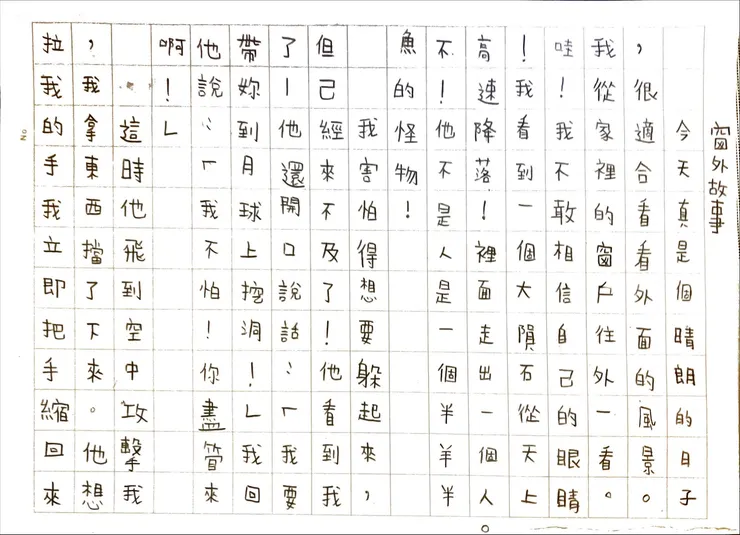 窗外故事
今天真是個晴朗的日子
，很適合看看外面的風景。
我從家裡的窗戶往外一看。
哇！我不敢相信自己的眼睛
！我看到一個大隕石從天上
高速降落！裡面走出一個人。
不！他不是人是一個半羊半
魚的怪物！
我害怕得想要躲起來，
但己經來不及了！他看到我，
了！他還開口說話：「我要
帶妳到月球上挖洞！」我回
他說：「我不怕！你盡管來
啊！」
這時他飛到空中攻擊我
，我拿東西擋了下來。他想
拉我的手我立即把手縮回來
No